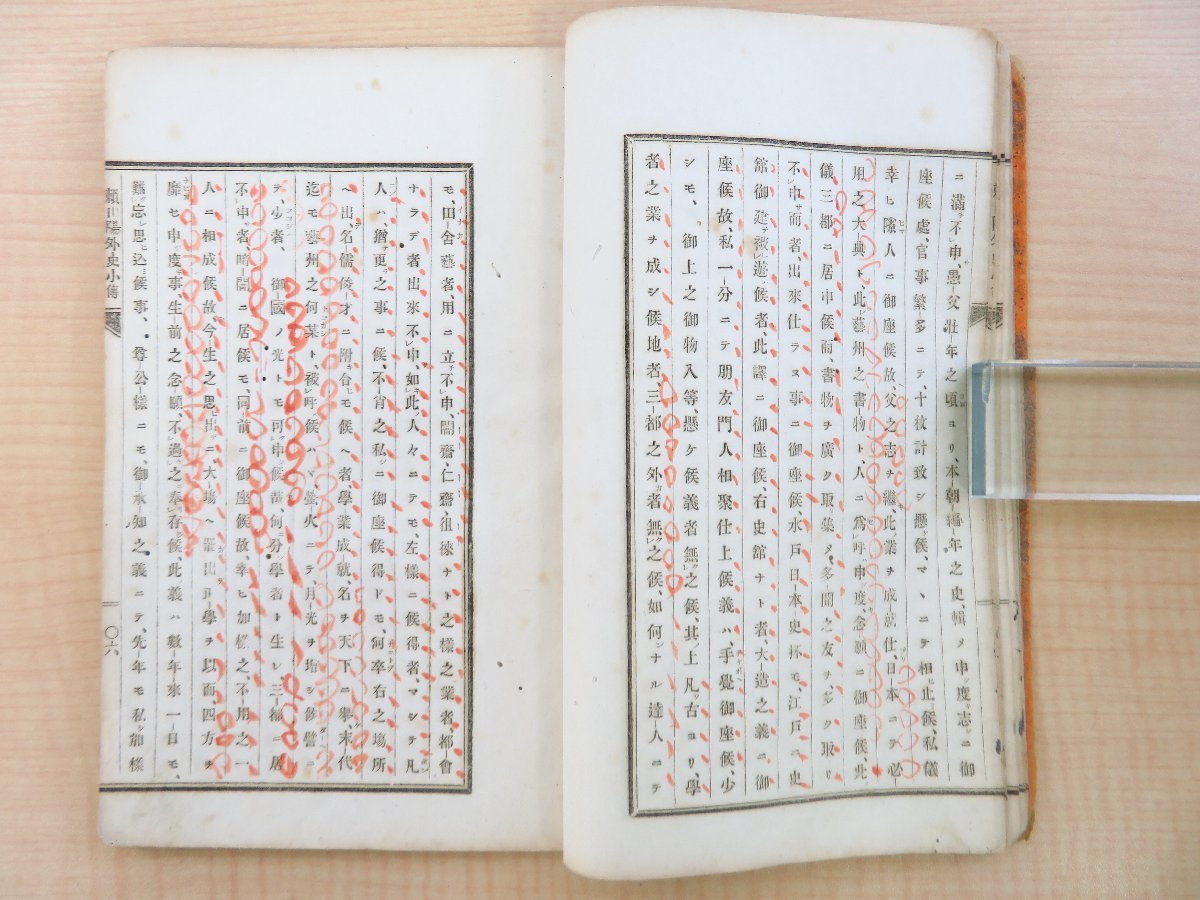 ニ滿不申、愚父壯年之頃ヨリ、本朝編年之史、輯メ申度志ニ御
座候處、官事繁多ニテ、十枚計致シ懸候、マヽニテ相止候、私儀
幸ヒ隙人ニ御座候故、父之志ヲ繼、此業ヲ成就仕、日本ニテ必
用之大典ト、此藝州之書物ト、人ニ爲呼申度念願ニ御座候、此
儀三都ニ居申候而、書物ヲ廣ク取集メ、多聞之友ヲ多ク取リテ
不申而者、出來仕ラヌ事ニ御座候、水戸日本史抔モ、江戸ニ史
館御建テ被遊候者、此譯ニ御座候、右史館ナト者、大造之義ニ御
座候故、私一分ニテ朋友門人相聚仕上候義ハ、手覺御座候、少
シモ、御上之御物入等、懸ケ候義者無之候、其上凡古ヨリ、學
者之業ヲ成シ候地者、三都之外者無之候、如何ナル達人ニテ
モ、田舍藝者、用ニ立不申、闇齋、仁齋、徂徠ナト之樣之業者、都會
ナラデ者出來不申、如此人々ニテモ、左樣ニ候得者マシテ凡
人ハ、猶更之事ニ候、不肖之私ニ御座候得ドモ、何卒右之場所
ヘ出、名儒俊才ニ附合モ候ヘ者、學業成就、名ヲ天下ニ擧、末代
迄モ藝州之何某ト、被呼候ハヾ、螢火ニテ、月光ヲ増シ候譬ニ
テ、少者、御國ノ光トモ可申候哉、何分學者ト生レ、三都ニ居
不申者、暗闇ニ居候モ、同前ニ御座候故、幸ヒ加樣之、不用之一
人ニ相成候故、今生之思出ニ大場ヘ罷出、學ヲ以而、四方ヲ
靡セ申度事、生前之念願、不過之奉存候、此義ハ數年來一日モ、
難忘思込候事、尊公樣ニモ、御承知之義ニテ、先年モ私加樣
頼山陽外史小傳
〇六